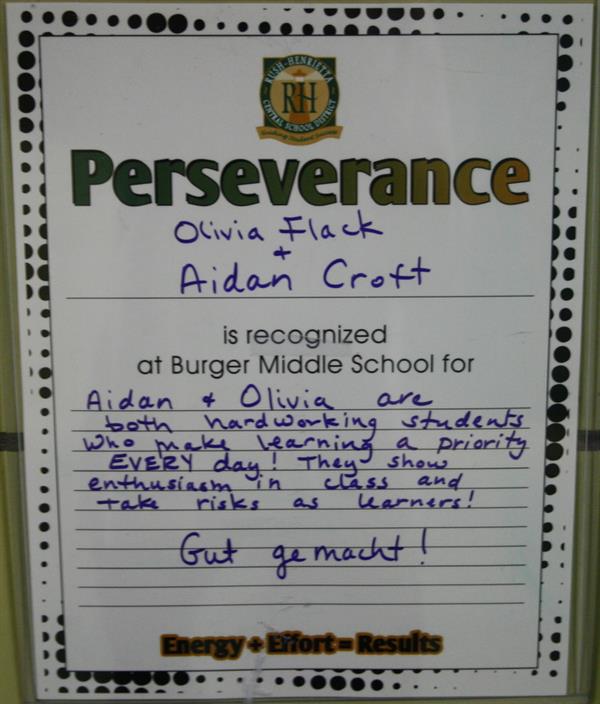 RUSH-HENRIETTA
RH
CENTRAL SCHOOL DISTRICT
Perseverance
Olivia Flack
+
Aidan Croft
is recognized
at Burger Middle School for
Aidan + Olivia are
both hardworking students
who make learning a priority
EVERY day! They show
enthusiasm in class and
take risks as learners!
Gut gemacht!
Energy + Effort = Results